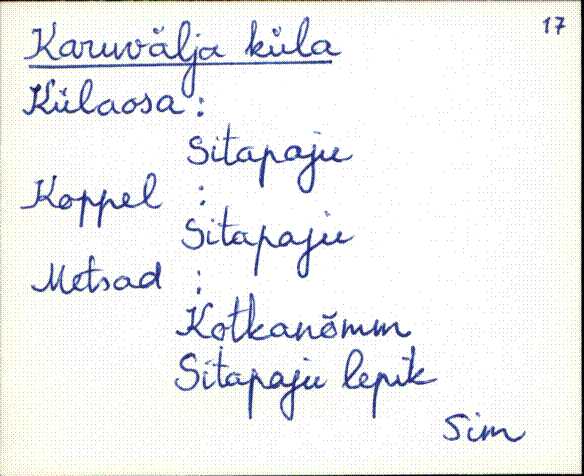 17
Karuvälja küla
Külaosa:
Sitapaju
Koppel :
Sitapaju
Metsad :
Kotkanõmm
Sitapaju lepik
Sim